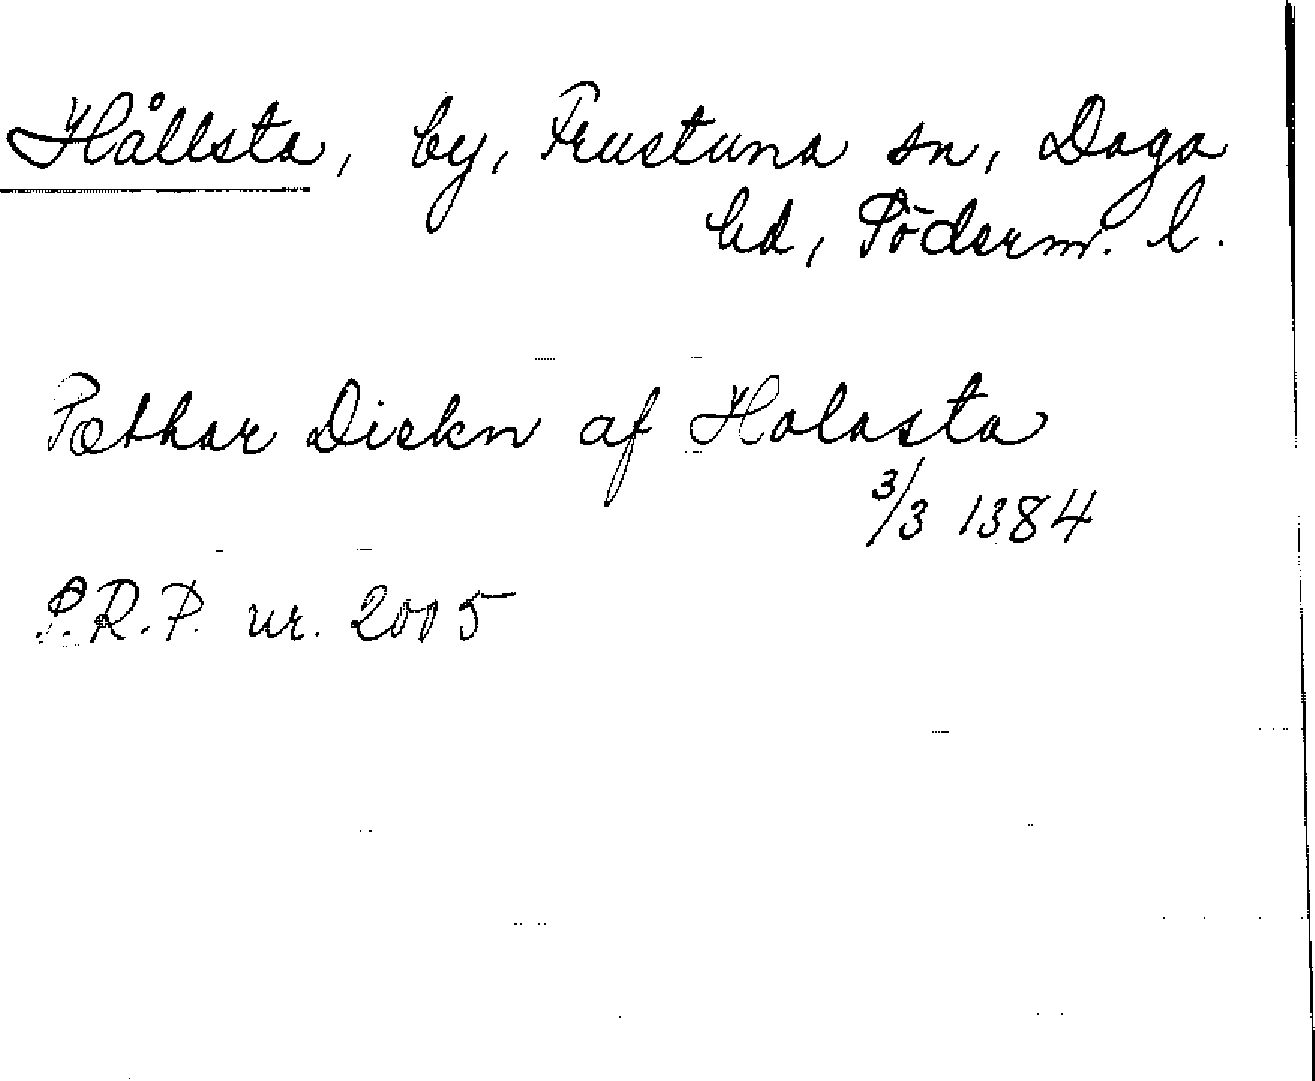 Hållsta, by, Frustuna sn, Daga
hd, Söderm. l.
Pæthar Diekn af Holasta
3/3 1384
S.R.P. nr. 2005